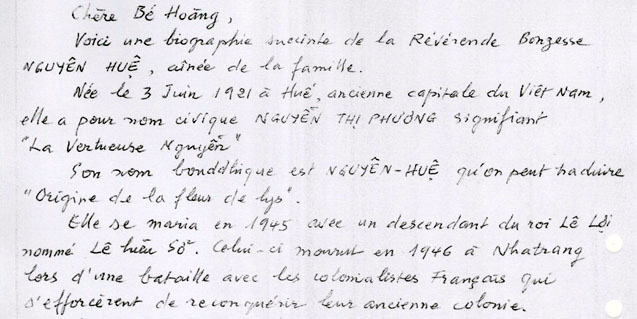 Chère Bé Hoàng,
Voici une biographie succinte de la Révérende Bonzesse
NGUYÊN HUỆ, aînée de la famille.
Née le 3 Juin 1921 à Hué, ancienne capitale du Việt Nam,
elle a pour nom civique NGUYỄN THỊ PHƯƠNG signifiant
"La Vertueuse Nguyễn"
Son nom bouddhique est NGUYÊN-HUỆ qu'on peut traduire
"Origine de la fleur de lys".
Elle se maria en 1945 avec un descendant du roi Lê Lợi
nommé Lê hữu Sô. Celui-ci mourut en 1946 à Nhatrang
lors d'une bataille avec les colonialistes Français qui
s'efforcèrent de reconquérir leur ancienne colonie.